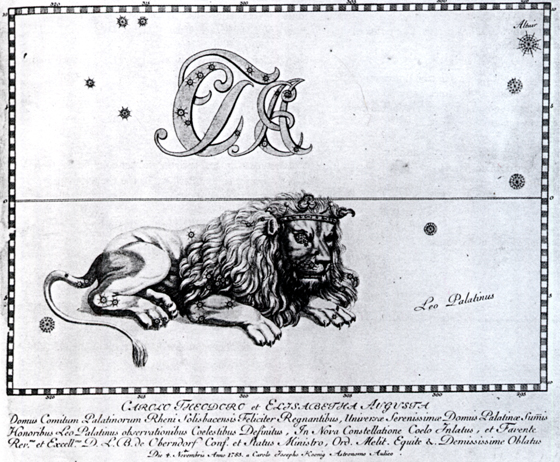 320 315 310 305 300 295
Altair
Leo Palatinus
320 315 310 305 300 295
CAROLO THEODORO et ELISABETHA AUGUSTA
Domus Comitum Palatinorum Rheni Solisbacensis Feliciter Regnantibus, Universæ Serenissimæ Domus Palatinæ Sumis
Honoribus Leo Palatinus observationibus Coelestibus Definitus, In Nova Constellatione Coelo Inlatus, et Favente
Rev.mo et Excell.mo D. L. B. de Oberndorf Conf. et Status Ministro, Ord. Melit. Equite & Demississime Oblatus
Die 4 Novembris Anno 1785. a Carolo Josepho Koenig Astronomo Aulico.